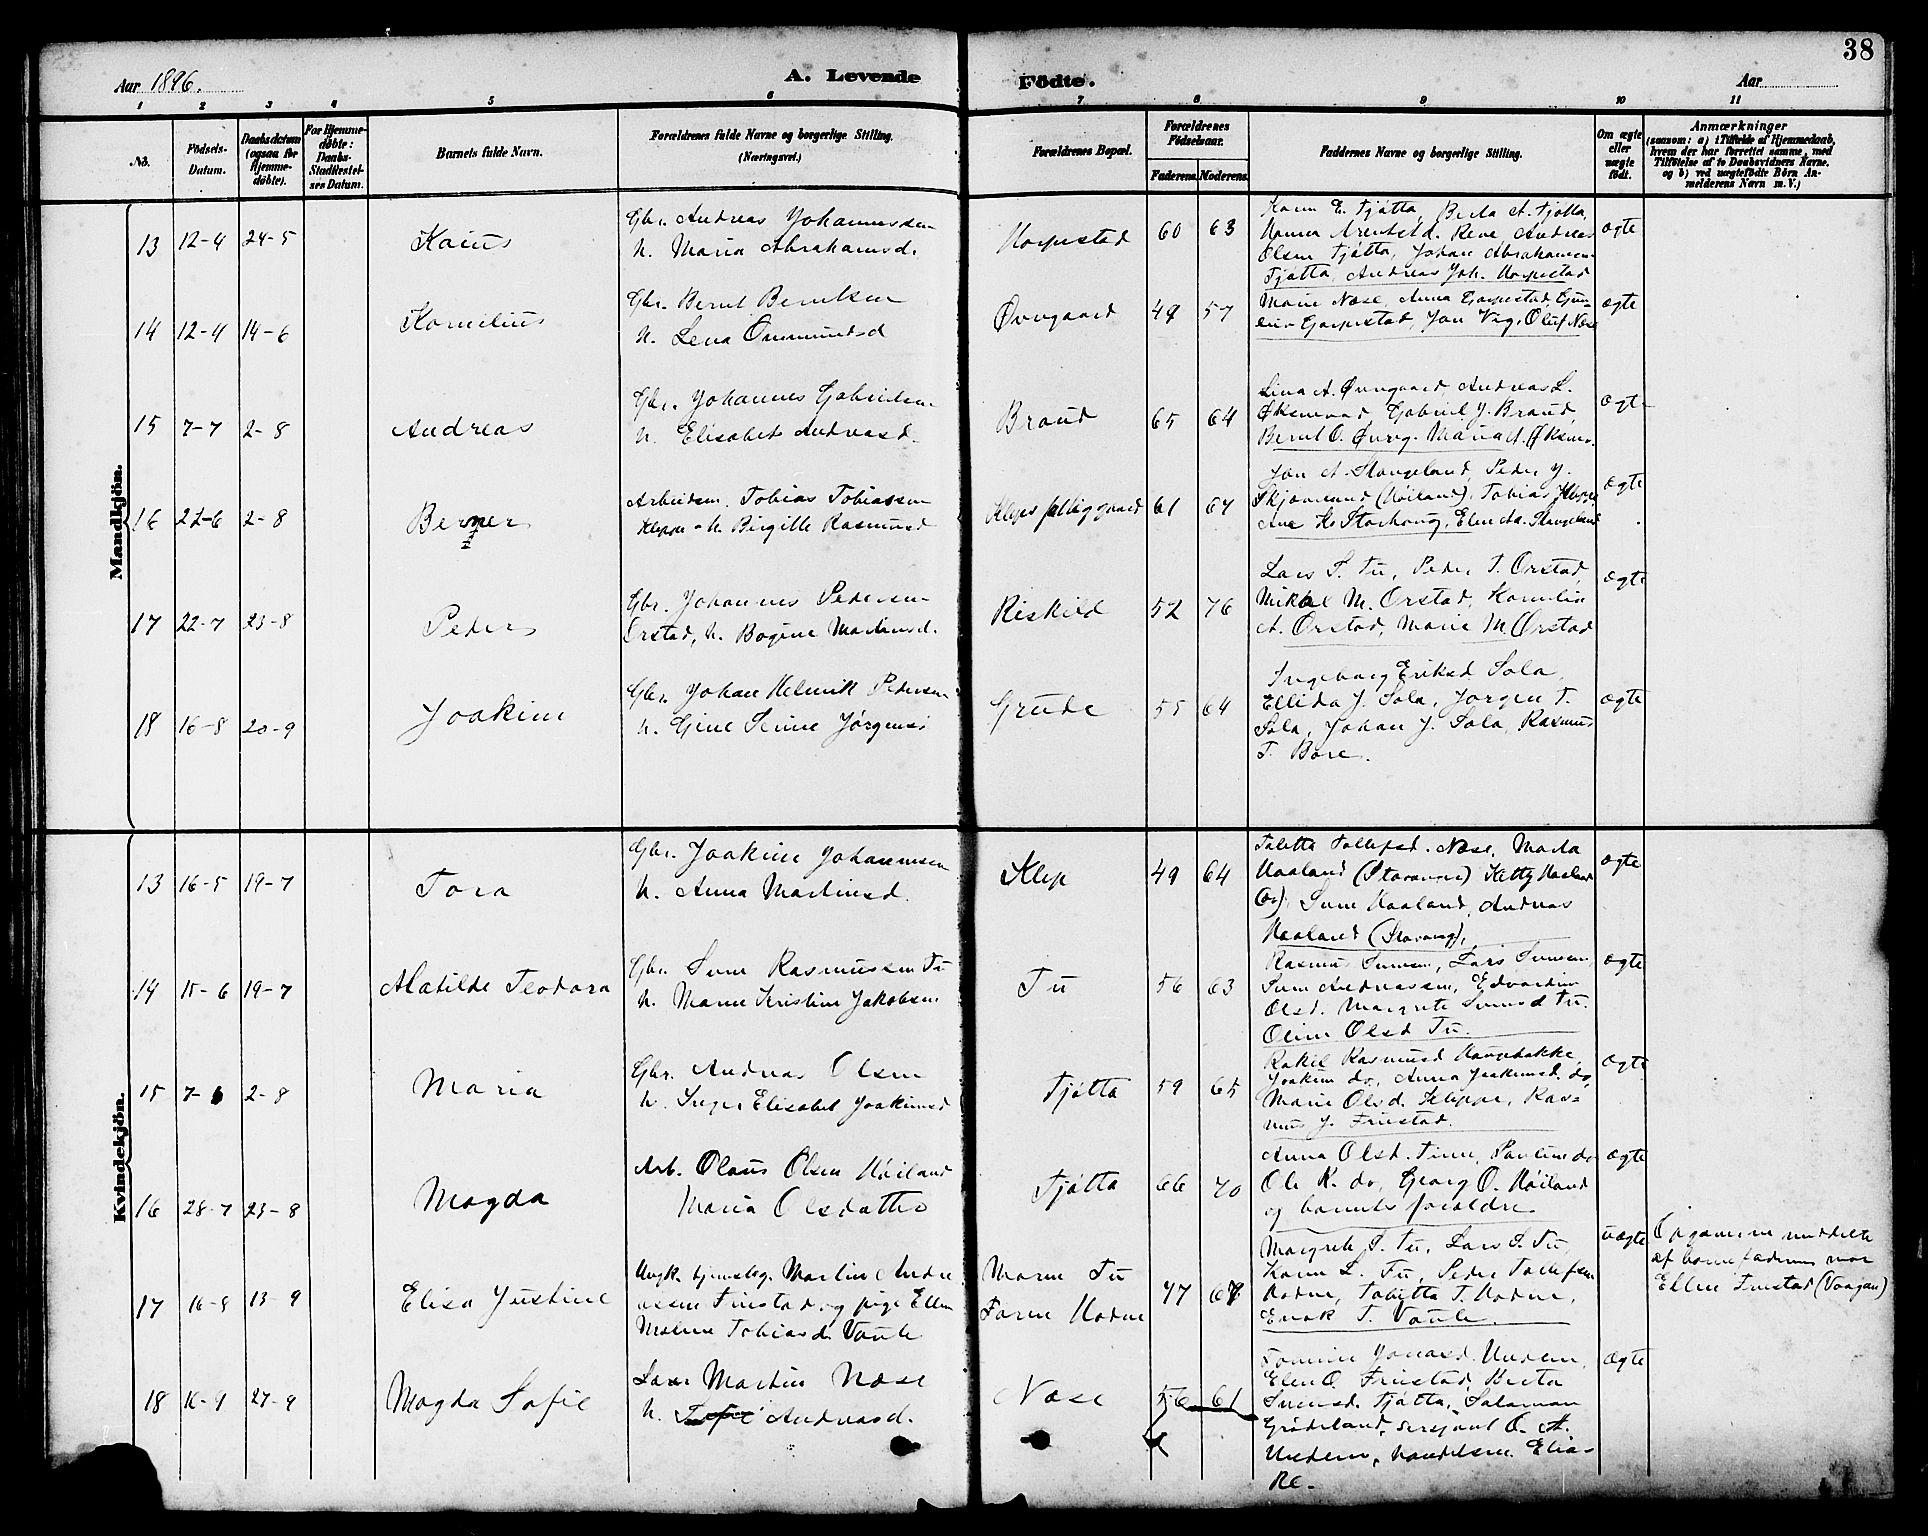 38
Aar 1896.
A. Levende
Födte.
Aar
1 2 3 4 5 6 7 8 9 10 11
No.
Födsels-Datum.
Daabsdatum (ogsaa for Hjemme-döbte).
For Hjemme-döbte: Daabs-Stadfæstel-ses Datum.
Barnets fulde Navn.
Forældrenes fulde Navne og borgerlige Stilling. (Næringsvei.)
Forældrenes Bopæl.
Forældrenes Födselsaar.
Faderens. Moderens.
Faddernes Navne og borgerlige Stilling.
Om ægte eller uægte födt.
Anmærkninger
(saasom: a) i Tilfælde af Hjemmedaab, hvem der har forrettet samme, med Tilföielse af to Daabsvidners Navne, og b) ved uægtefödte Börn An-melderens Navn m. V.)
Mandkjön.
13 12-4 24-5
Kaius
Gbr. Andreas Johannessen
h. Maria Abrahamsd.
Horpestad 60 63
Karen E. Tjøtta, Berta A. Tjøtta,
Hanna Arentsd. Reve, Andreas
Olsen Tjøtta, Johan Abrahamsen
Tjøtta, Andreas Joh. Horpestad
ægte
14 12-4 14-6
Kornelius
Gbr. Bernt Berntsen
h. Lena Ommundsd
Øvregaard 49 57
Marie Næse, Anna Gorpestad,
Gorpestad, Jan Vig, Oluf Næse
ægte
15 7-7 2-8
Andreas
Gbr. Johannes Gabrielsen
h. Elisabet Andreasd.
Braud 65 64
Lina A. Øvregaard, Andreas L.
Øksnevad, Gabriel J. Braud,
Bernt O. Øvrg. Maria A. Øksnev.
ægte
16 22-6 2-8
Berner
Arbeidsm. Tobias Tobiassen
Kleppe - h. Birgitte Rasmusd
Kleps fattiggaard 61 67
Jan A. Stangeland, Peder J.
Skjæveland (Høiland), Tobias Kleppe,
Ane K. Storhoug, Elen Aa. Stangeland
ægte
17 22-7 23-8
Peder
Gbr. Johannes Pedersen
Ørstad, h. Bogine Martinsd.
Reskild 52 76
Lars S. Tu, Peder T. Orstad,
Mikael M. Orstad, Kornelia
A. Orstad, Marie M. Orstad
ægte
18 16-8 20-9
Joakim
Gbr. Johan Helmik Pedersen
h. Gine Serine Jørgensd
Grude 55 64
Ingeborg Eriksd Sola,
Ellida J. Sola, Jorgen T.
Sola, Johan J. Sola, Rasmus
T. Bore.
ægte
Kvindekjön.
13 16-5 19-7
Tora
Gbr. Joakim Johannessen
h. Anna Martinsd.
Klep 49 64
Tabetta Tollefsd. Næse, Marta
Haaland (Stavanger) Ketty Haaland
(do), Sven Haaland, Andreas
Haaland (Stavang).
ægte
14 15-6 19-7
Matilde Teodora
Gbr. Sven Rasmussen Tu
h. Maren Kristine Jakobsen
Tu 56 63
Rasmus Svensen, Lars Svensen,
Sven Andreassen, Edvardine
Olsd. Margrete Svensd Tu.
Oline Olsd Tu.
ægte
15 7-6 2-8
Maria
Gbr. Andreas Olsen
h. Inger Elisabet Joakimsd
Tjøtta 59 65
Rakel Rasmusd Haugebakke,
Joakim do, Anna Joakimsd. do,
Marie Olsd. Kleppe, Ras-
mus J. Friestad.
ægte
16 28-7 23-8
Magda
Arb. Olaus Olsen Høiland
Maria Olsdatter
Tjøtta 66 70
Anna Olsd. Time, Pauline do
Ole K. do, Georg O. Høiland
og barnets forældre.
ægte
17 16-8 13-9
Elisa Justine
Ungk. tjenesteg. Martin Andre
assen Friestad og pige Ellen
Malene Tobiasd. Vaule
Maren Tu
Faren Hodne
77 67
Margrete S. Tu, Lars S. Tu
Karen L. Tu, Peder Tollefsen
Hodne, Tabitta T. Hodne,
Enok T. Vaule.
uægte
Opgaverne meddelte
af barnefaderens mor
Ellen Friestad (Vaagan)
18 16-9 27-9
Magda Sofie
Lars Martin Næse
h. Andreasd.
Næse 56 61
Jonasd. Undem,
Elen O. Friestad, Berta
Svensd. Tjøtta, Salamon
Grødeland, sersjant O. A.
Undem, handelsm. Elia-
Re.
Ægte